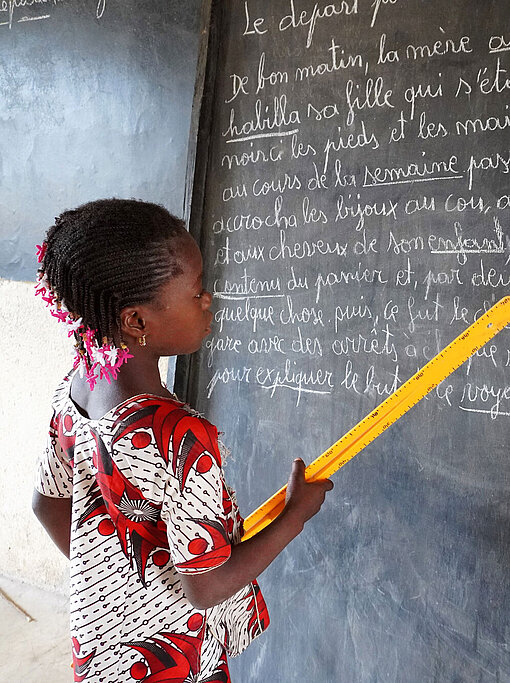 Le depart p
De bon matin, la mère a
habilla sa fille qui s'éta
noirci les pieds et les mai
au cours de la semaine pas
accrocha les bijoux au cou, a
et aux cheveux de son enfant
contenu du panier et, par de
quelque chose, puis, ce fut le
gare avec des arrêts à
pour expliquer le but ce voya